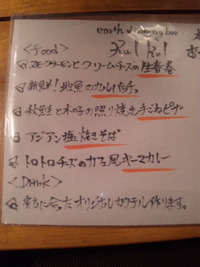 earth dining bar
<Food>
スモークサーモンとクリームチーズの生春巻
新鮮!地魚のカルパッチョ
秋鮭と木の子の照り焼き手ごねピザ
アジアン塩焼きそば
トロトロチーズのカフェ風キーマカレー
<Drink>
気分に合ったオリジナルカクテル作ります。